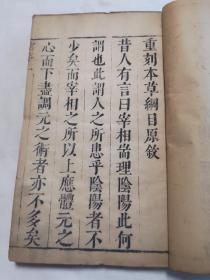 重刻本草綱目原敘
昔人有言曰宰相當理陰陽此何
謂也此謂人之所患乎陰陽者不
少矣而宰相之所以上應體元之
心而下盡調元之術者亦不多矣